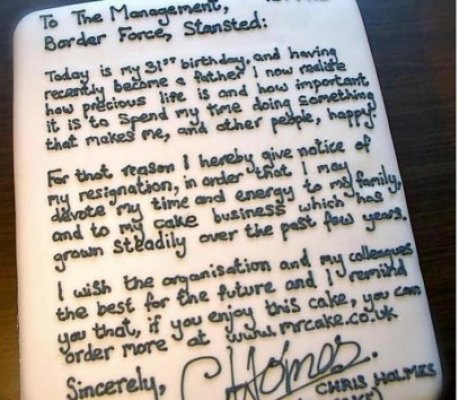 To The Management,
Border Force, Stansted:
Today is my 31st birthday, and having
recently become a father I now realise
how precious life is and how important
it is to spend my time doing something
that makes me, and other people, happy.
For that reason I hereby give notice of
my resignation, in order that I may
devote my time and energy to my family,
and to my cake business which has
grown steadily over the past few years.
I wish the organisation and my colleagues
the best for the future and I remind
you that, if you enjoy this cake, you can
order more at www.mrcake.co.uk
Sincerely,
CHolmes.
CHRIS HOLMES